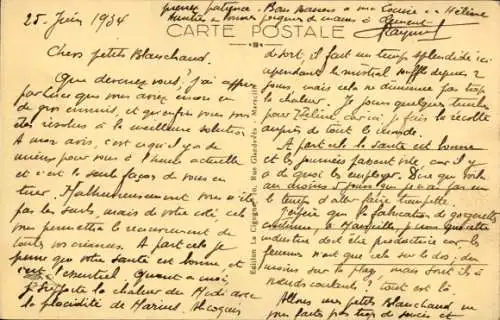 25. Juin 1934
CARTE POSTALE
Chers petits Blanchaud.
Que devenez vous? j'ai appris
par lice que vous avez encore eu
de gros ennuis, et qu'enfin vous vous
êtes résolus à la meilleure solution
A mon avis, c'est ce qu'il y a de
mieux pour vous à l'heure actuelle
et c'est le seul façon de vous en
tirer. Malheureusement vous n'êtes
pas les seuls, mais de votre côté, cela
vous permettra le recouvrement de
toutes vos créances. A part cela je
pense que votre santé est bonne, et
c'est l'essentiel. Quant à moi,
je supporte la chaleur du Midi avec
la placidité de Marius.
Edition La Cigogne, Rue Glandevès - Marseille
Bons Baisers à ma Louise et Hélène
bonnes poignes de mains à
de sort, il fait un temps splendide ici
cependant le mistral souffle depuis 2
jours, mais cela ne diminue pas trop
la chaleur. Je joue quelques
pour Hélène, car ici je fais la récolte
auprès de tout le monde.
A part cela la santé est bonne
et les journées passent vite, car il y
a de quoi les employer. Dire que voilà
au moins 5 jours que je n'ai pas eu
le temps d'aller faire trempette.
J'espère que la fabrication de gorgerettes
continue, à Marseille je crois que cette
industrie doit être productive car les
femmes n'ont que cela sur le dos; du
moins sur la plage, mais sont-ils à
nœuds coulants? tout est là.
Allons mes petits Blanchaud, ne
vous faites pas trop de soucis et